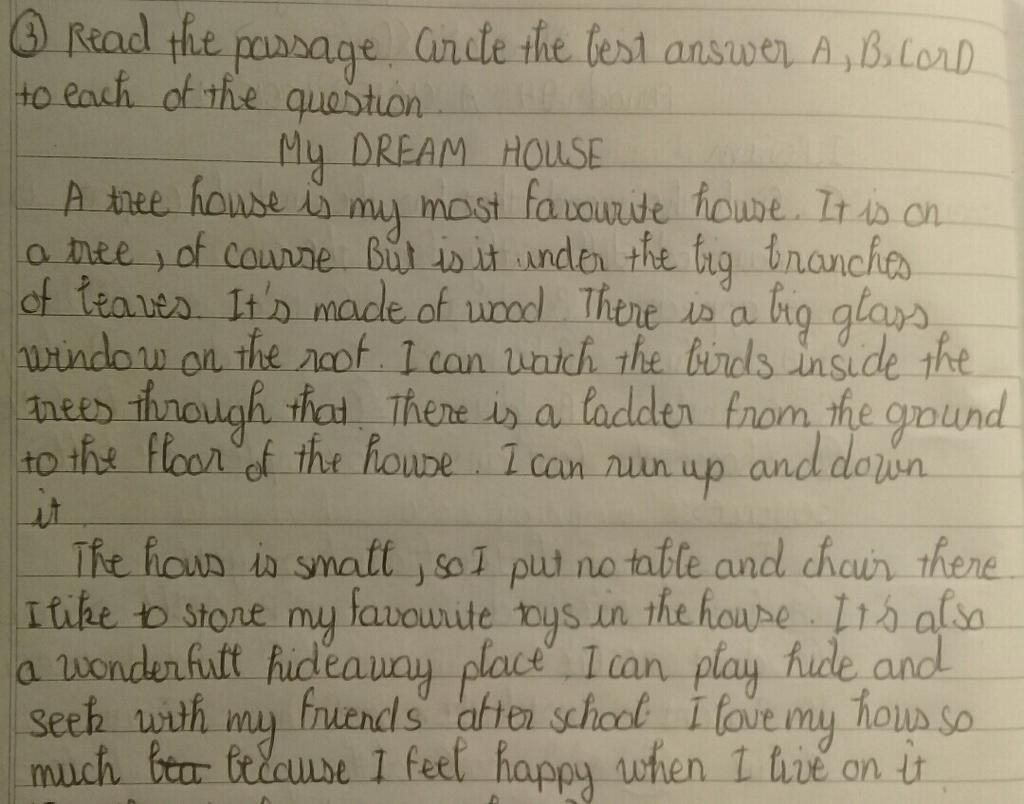 ③ Read the passage. Circle the best answer A, B, C or D
to each of the question.
My DREAM HOUSE
A tree house is my most favourite house. It is on
a tree, of course. But is it under the big branches
of leaves. It's made of wood. There is a big glass
window on the roof. I can watch the birds inside the
trees through that. There is a ladder from the ground
to the floor of the house. I can run up and down
it.
The hous is small, so I put no table and chair there.
I like to store my favourite toys in the house. It's also
a wonderfull hideaway place. I can play hide and
seek with my friends after school. I love my hous so
much because I feel happy when I live on it